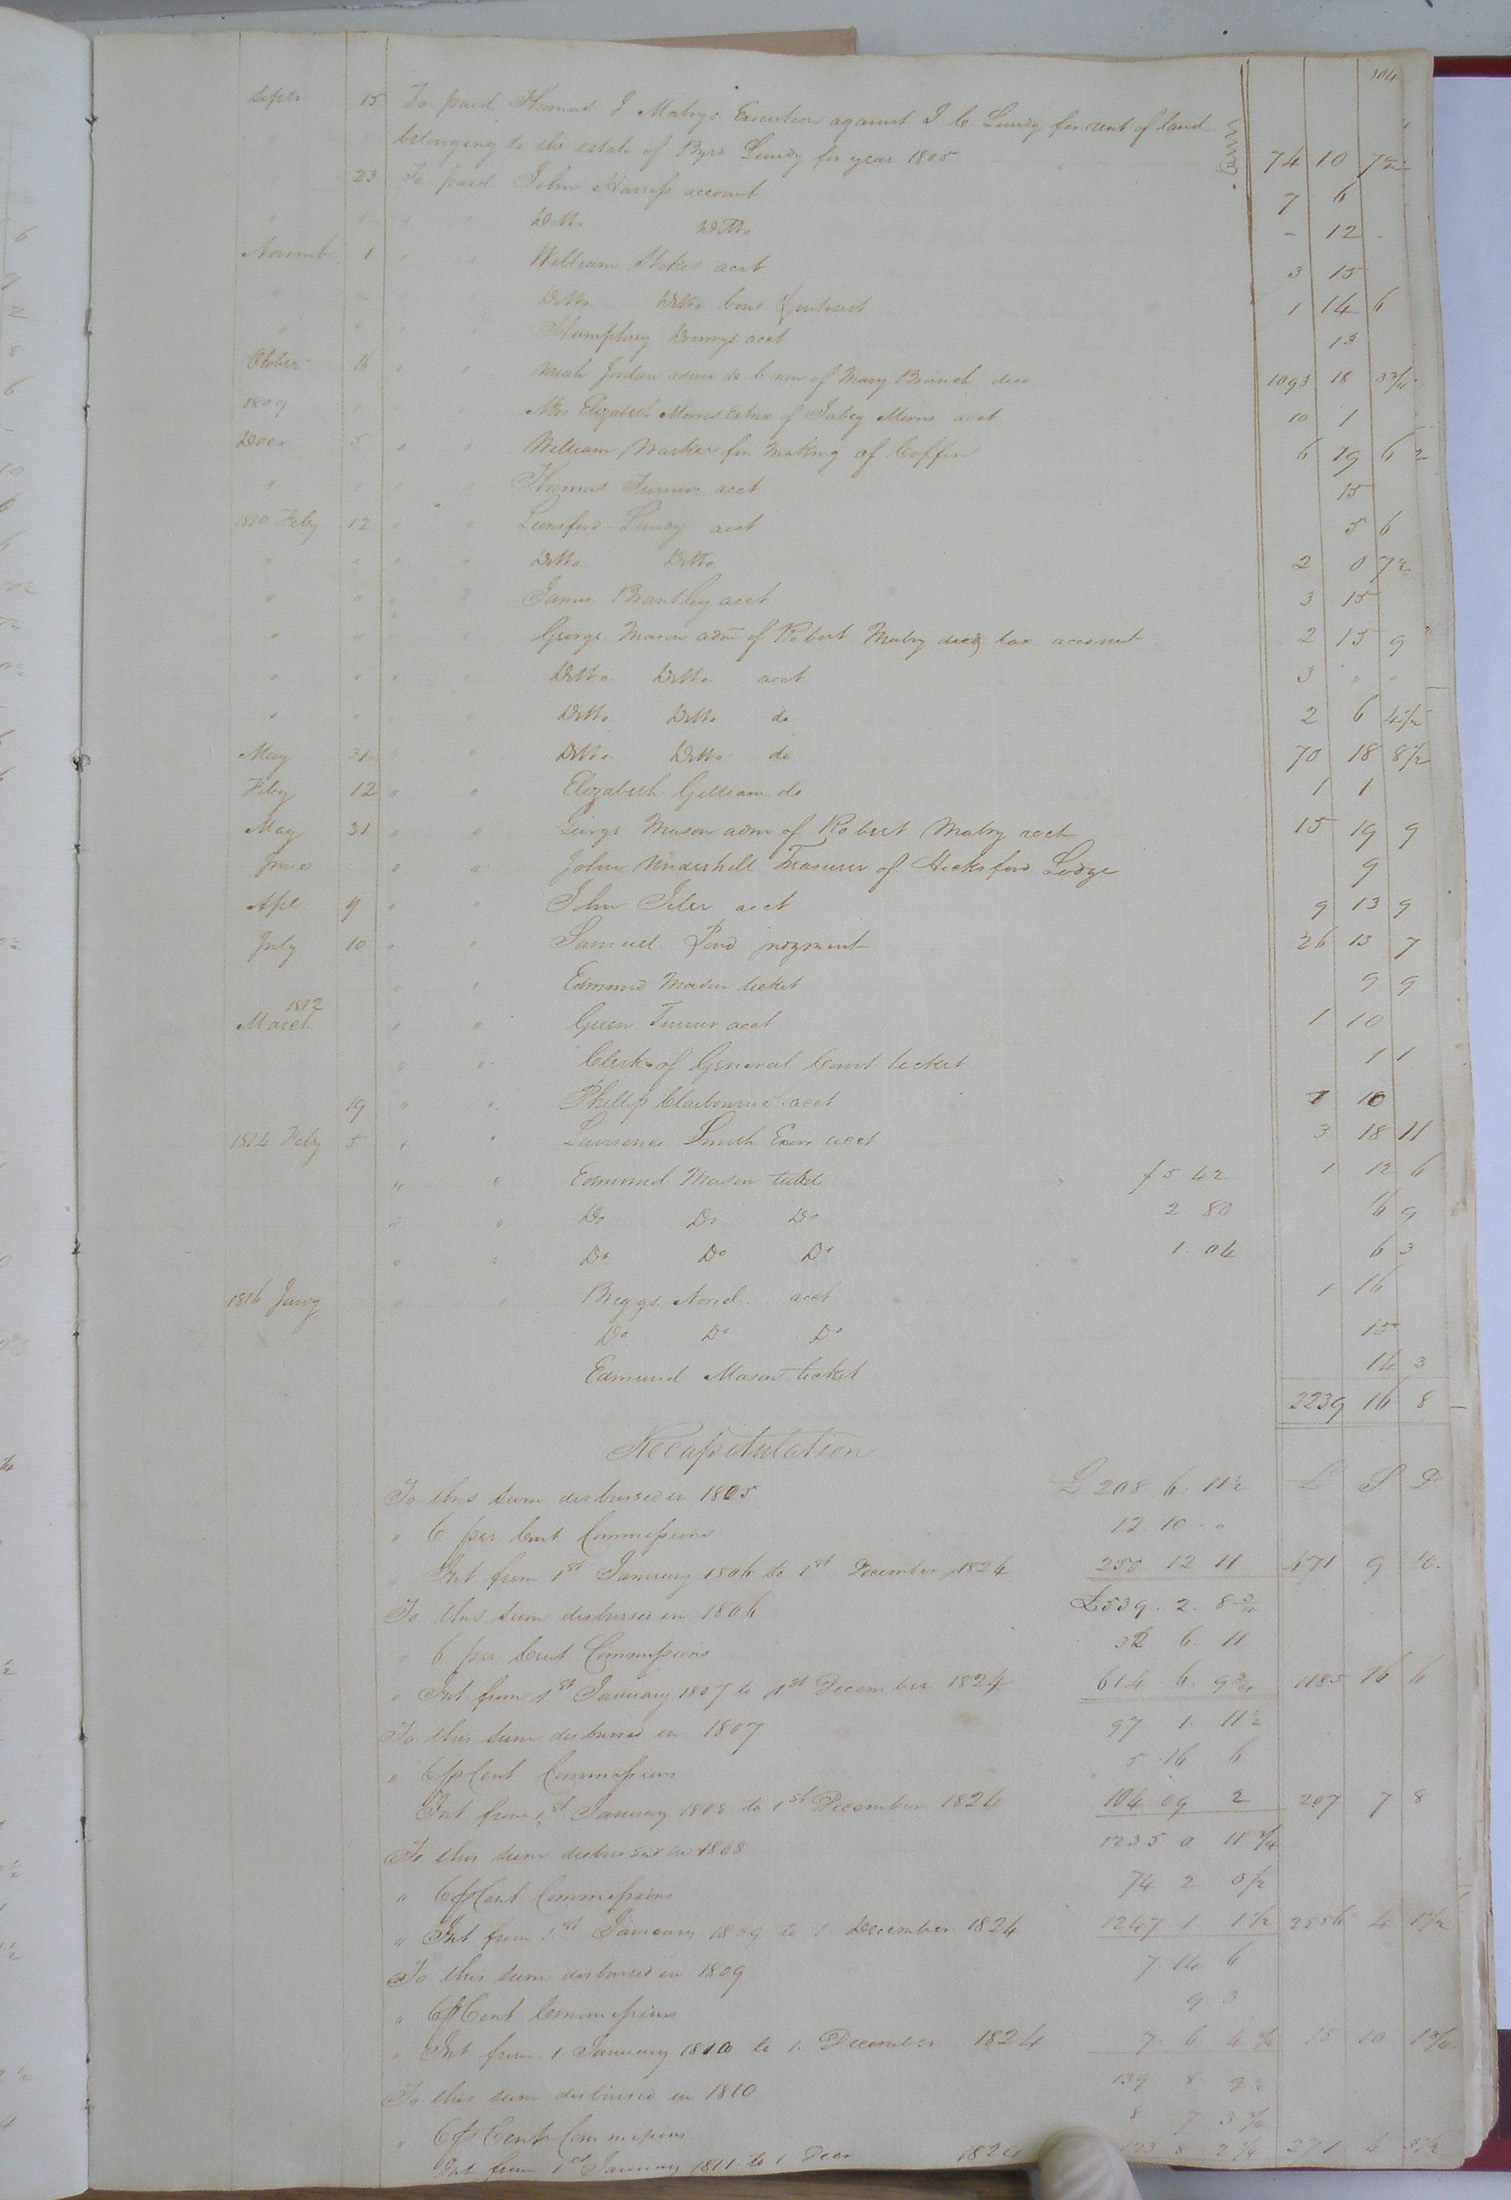 104
Septr 15 To paid Thomas J Mabrys Execution against J C Lundy for rent of land
belonging to the estate of Byrd Lundy for year 1805 74 10 7½
" 23 To paid John Harriss account 7 6
" " " " Ditto Ditto - 12 -
Novemb 1 " " William Stokes acct 3 15
" " " " Ditto Ditto bond & interest 1 14 6
" " " " Humphrey acct 13
Octobr 16 " " Jordan admr de b non of Mary Branch decd 1093 18 3¾
1809 " " " Mrs Elizabeth Morris of Morris acct 10 1
Decr 5 " " William for making of Coffin 6 19 6
" " " " Thomas Turner acct 15
1810 Feby 12 " " Lunsford Lundy acct 5 6
" " " " Ditto Ditto 2 0 7½
" " " " James Brantley acct 3 15
" " " " George Mason adm of Robert Mabry decd tax account 2 15 9
" " " " Ditto Ditto acct 3 " "
" " " " Ditto Ditto do 2 6 4½
May 31 " " Ditto Ditto do 70 18 8½
Feby 12 " " Elizabeth Gilliam do 1 1
May 31 " " George Mason adm of Robert Mabry acct 15 19 9
June " " John Underhill Treasurer of Hicksford Lodge 9
Apl 9 " " John acct 9 13 9
July 10 " " Samuel judgment 26 13 7
" " Edmund Mason ticket 9 9
1812
March " " Green Turner acct 1 10
" " Clerk of General Court ticket 1 1
19 " " Phillip Claibourne acct 10
1814 Feby 5 " " Lawrence Smith Exor acct 3 18 11
" " Edmund Mason ticket $5 42 1 12 6
" " Do Do Do 2 80 16 9
" " Do Do Do 1.04 6 3
1816 Jany " " Briggs acct 1 16
Do Do Do 15
Edmund Mason ticket 14 3
2239 16 8
Recapitulation
To this sum disbursed in 1805 £ 208 6 11½ £ S D
" 6 per Cent Commissions 12 10 "
" Int from 1st January 1806 to 1st December 1824 250 12 11 471 9 10
To this sum disbursed in 1806 £539. 2. 8¾
" 6 per Cent Commissions 32 6 11
" Int from 1st January 1807 to 1st December 1824 614 6 9¾ 1185 16 6
To this sum disbursed in 1807 97 1 11½
" 6 p Cent Commissions 5 16 6
Int from 1st January 1808 to 1st December 1824 104 09 2 207 7 8
To this sum disbursed in 1808 1235 0 11¾
" 6 p Cent Commissions 74 2 0½
" Int from 1st January 1809 to 1 December 1824 1247 1 1½ 2556 4 1½
To this sum disbursed in 1809 7 14 6
" 6 p Cent Commissions 9 3
" Int from 1 January 1810 to 1. December 1824 7 6 4¾ 15 10 1¾
To this sum disbursed in 1810 139 8 9½
" 6 p Cent Commissions 8 7 3¾
Int from 1st January 1811 to 1 Decr 1824 8 2¼ 271 6